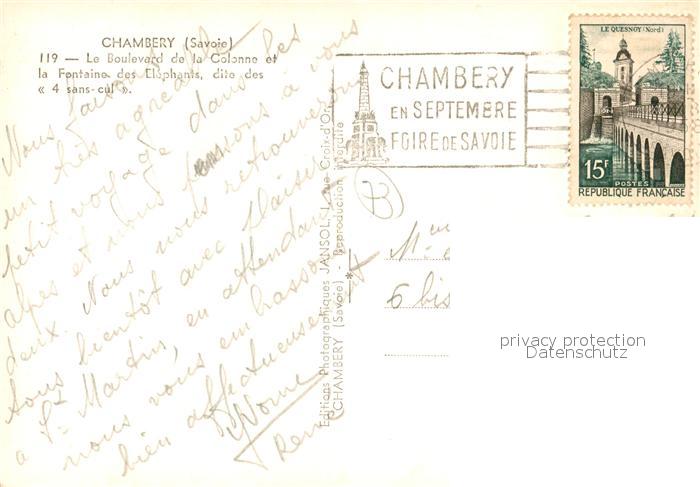 CHAMBERY (Savoie)
119 — Le Boulevard de la Colonne et
la Fontaine des Eléphants, dite des
« 4 sans-cul ».
Nous faisons
un très agréable
petit voyage dans les
alpes et nous pensons à vous
deux. Nous nous retrouverons
tous bientôt avec plaisir
à St Martin, en attendant
nous vous embrassons
bien affectueusement
Yvonne
René
Editions Photographiques JANSOL, 1, rue Croix-d'Or
CHAMBERY (Savoie) - Reproduction interdite
CHAMBERY
EN SEPTEMBRE
FOIRE DE SAVOIE
LE QUESNOY (Nord)
15F
POSTES
REPUBLIQUE FRANÇAISE
B
6 bis
privacy protection
Datenschutz